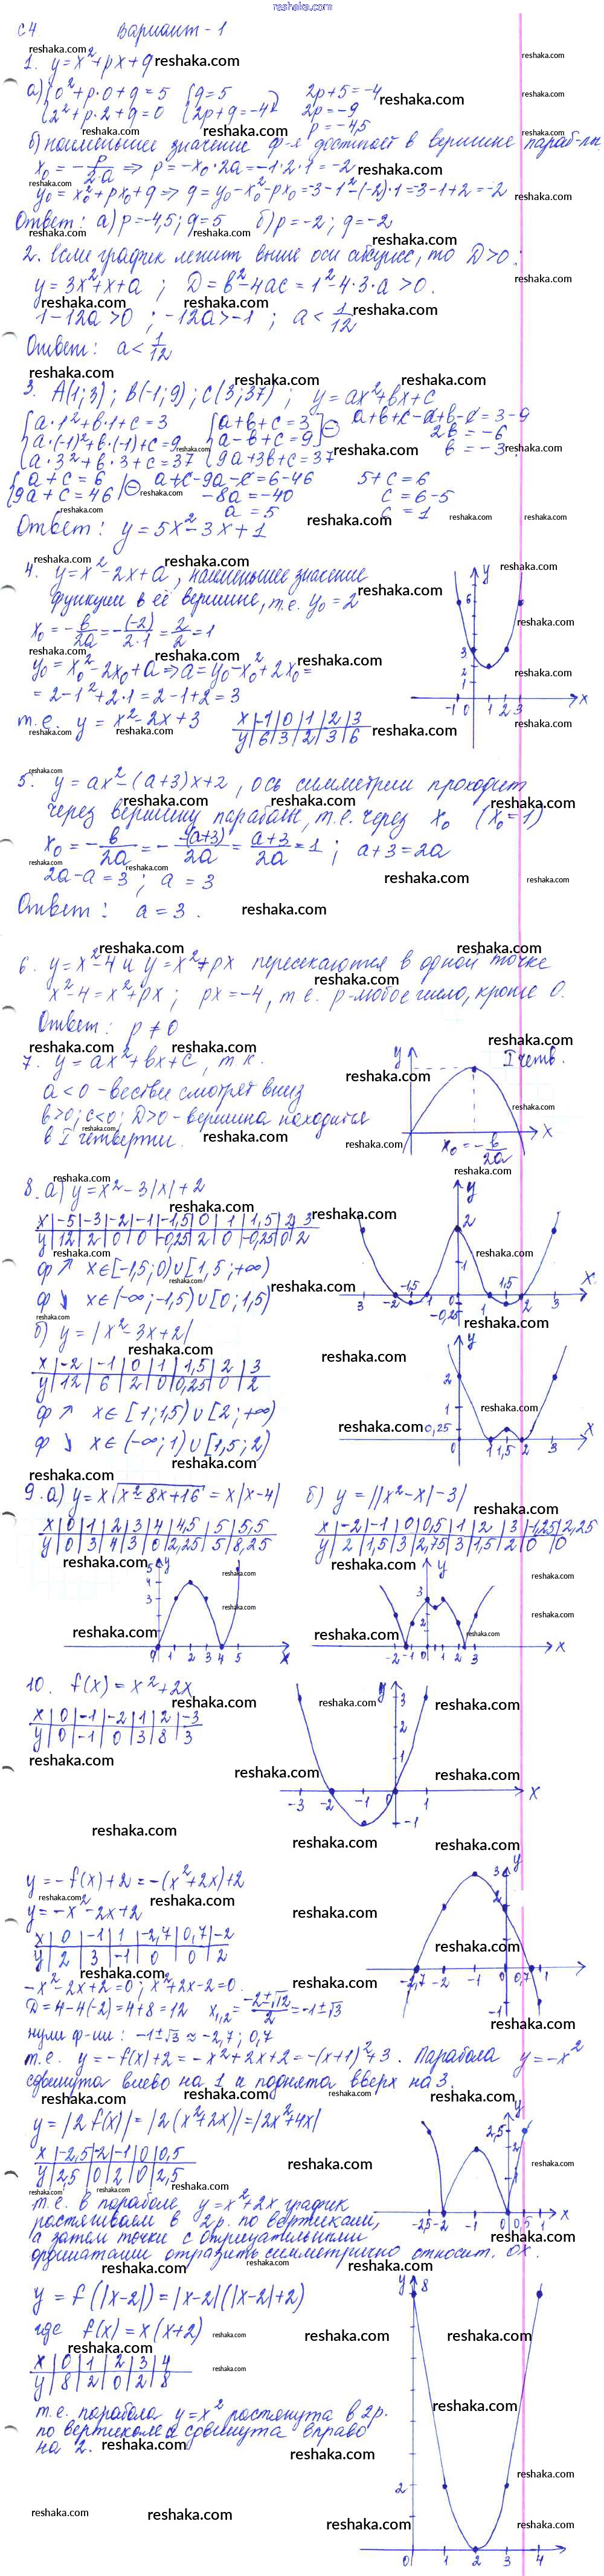 reshaka.com
С4 Вариант-1
1. y=x²+px+q
а) {0²+p·0+q=5 {q=5 2p+5=-4
{2²+p·2+q=0 {2p+q=-4 2p=-9
p=-4,5
б) наименьшее значение ф-я достигает в вершине
x₀=-p/2a ⇒ p=-x₀·2a=-1·2·1=-2
y₀=x₀²+px₀+q ⇒ q=y₀-x₀²-px₀=3-1²-(-2)·1=3-1+2=-2
Ответ: а) p=-4,5; q=5 б) p=-2; q=-2
2. Если график лежит выше оси абсцисс, то D>0.
y=3x²+x+a; D=b²-4ac=1²-4·3·a>0.
1-12a>0; -12a>-1; a<1/12
Ответ: a<1/12
3. A(1;3); B(-1;9); C(3;37); y=ax²+bx+c
{a·1²+b·1+c=3 {a+b+c=3 a+b+c-a+b-c=3-9
{a·(-1)²+b·(-1)+c=9 {a-b+c=9 2b=-6
{a·3²+b·3+c=37 {9a+3b+c=37 b=-3
{a+c=6 a+c-9a-c=6-46 5+c=6
{9a+c=46 -8a=-40 c=6-5
a=5 c=1
Ответ: y=5x²-3x+1
4. y=x²-2x+a, наименьшее значение
функции в её вершине, т.е. y₀=2
x₀=-b/2a=-(-2)/2·1=2/2=1
y₀=x₀²-2x₀+a ⇒ a=y₀-x₀²+2x₀=
=2-1²+2·1=2-1+2=3
т.е. y=x²-2x+3
x|-1|0|1|2|3
y|6|3|2|3|6
5. y=ax²-(a+3)x+2, ось симметрии проходит
через вершину параболы, т.е. через x₀ (x₀=1)
x₀=-b/2a=-(-(a+3))/2a=(a+3)/2a=1; a+3=2a
2a-a=3; a=3
Ответ: a=3.
6. y=x²-4 и y=x²+px пересекаются в одной точке
x²-4=x²+px; px=-4, т.е. p-любое число, кроме 0.
Ответ: p≠0
7. y=ax²+bx+c, т.к. I четв.
a<0 - ветви смотрят вниз
b>0; c<0; D>0 - вершина находится
в I четверти. x₀=-b/2a
8. а) y=x²-3|x|+2
x|-5|-3|-2|-1|-1,5|0|1|1,5|2|3
y|12|2|0|0|-0,25|2|0|-0,25|0|2
ф ↗ x∈[-1,5;0)∪[1,5;+∞)
ф ↘ x∈(-∞;-1,5)∪[0;1,5)
б) y=|x²-3x+2|
x|-2|-1|0|1|1,5|2|3
y|12|6|2|0|0,25|0|2
ф ↗ x∈[1;1,5)∪[2;+∞)
ф ↘ x∈(-∞;1)∪[1,5;2)
9. а) y=x√(x²-8x+16)=x|x-4| б) y=||x²-x|-3|
x|0|1|2|3|4|4,5|5|5,5
y|0|3|4|3|0|2,25|5|8,25
x|-2|-1|0|0,5|1|2|3|-1,25|2,25
y|2|1,5|3|2,75|3|1,5|2|0|0
10. f(x)=x²+2x
x|0|-1|-2|1|2|-3
y|0|-1|0|3|8|3
y=-f(x)+2=-(x²+2x)+2
y=-x²-2x+2
x|0|-1|1|-2,7|0,7|-2
y|2|3|-1|0|0|2
-x²-2x+2=0; x²+2x-2=0.
D=4-4(-2)=4+8=12 x₁,₂=(-2±√12)/2=-1±√3
нули ф-ии: -1±√3≈-2,7; 0,7
т.е. y=-f(x)+2=-x²+2x+2=-(x+1)²+3. Парабола y=-x²
сдвинута влево на 1 и поднята вверх на 3.
y=|2f(x)|=|2(x²+2x)|=|2x²+4x|
x|-2,5|-2|-1|0|0,5
y|2,5|0|2|0|2,5
т.е. в параболе y=x²+2x график
растягиваем в 2р. по вертикали,
а затем точки с отрицательными
ординатами отразить симметрично относит. OX.
y=f(|x-2|)=|x-2|(|x-2|+2)
где f(x)=x(x+2)
x|0|1|2|3|4
y|8|2|0|2|8
т.е. парабола y=x² растянута в 2р.
по вертикали и сдвинута вправо
на 2.